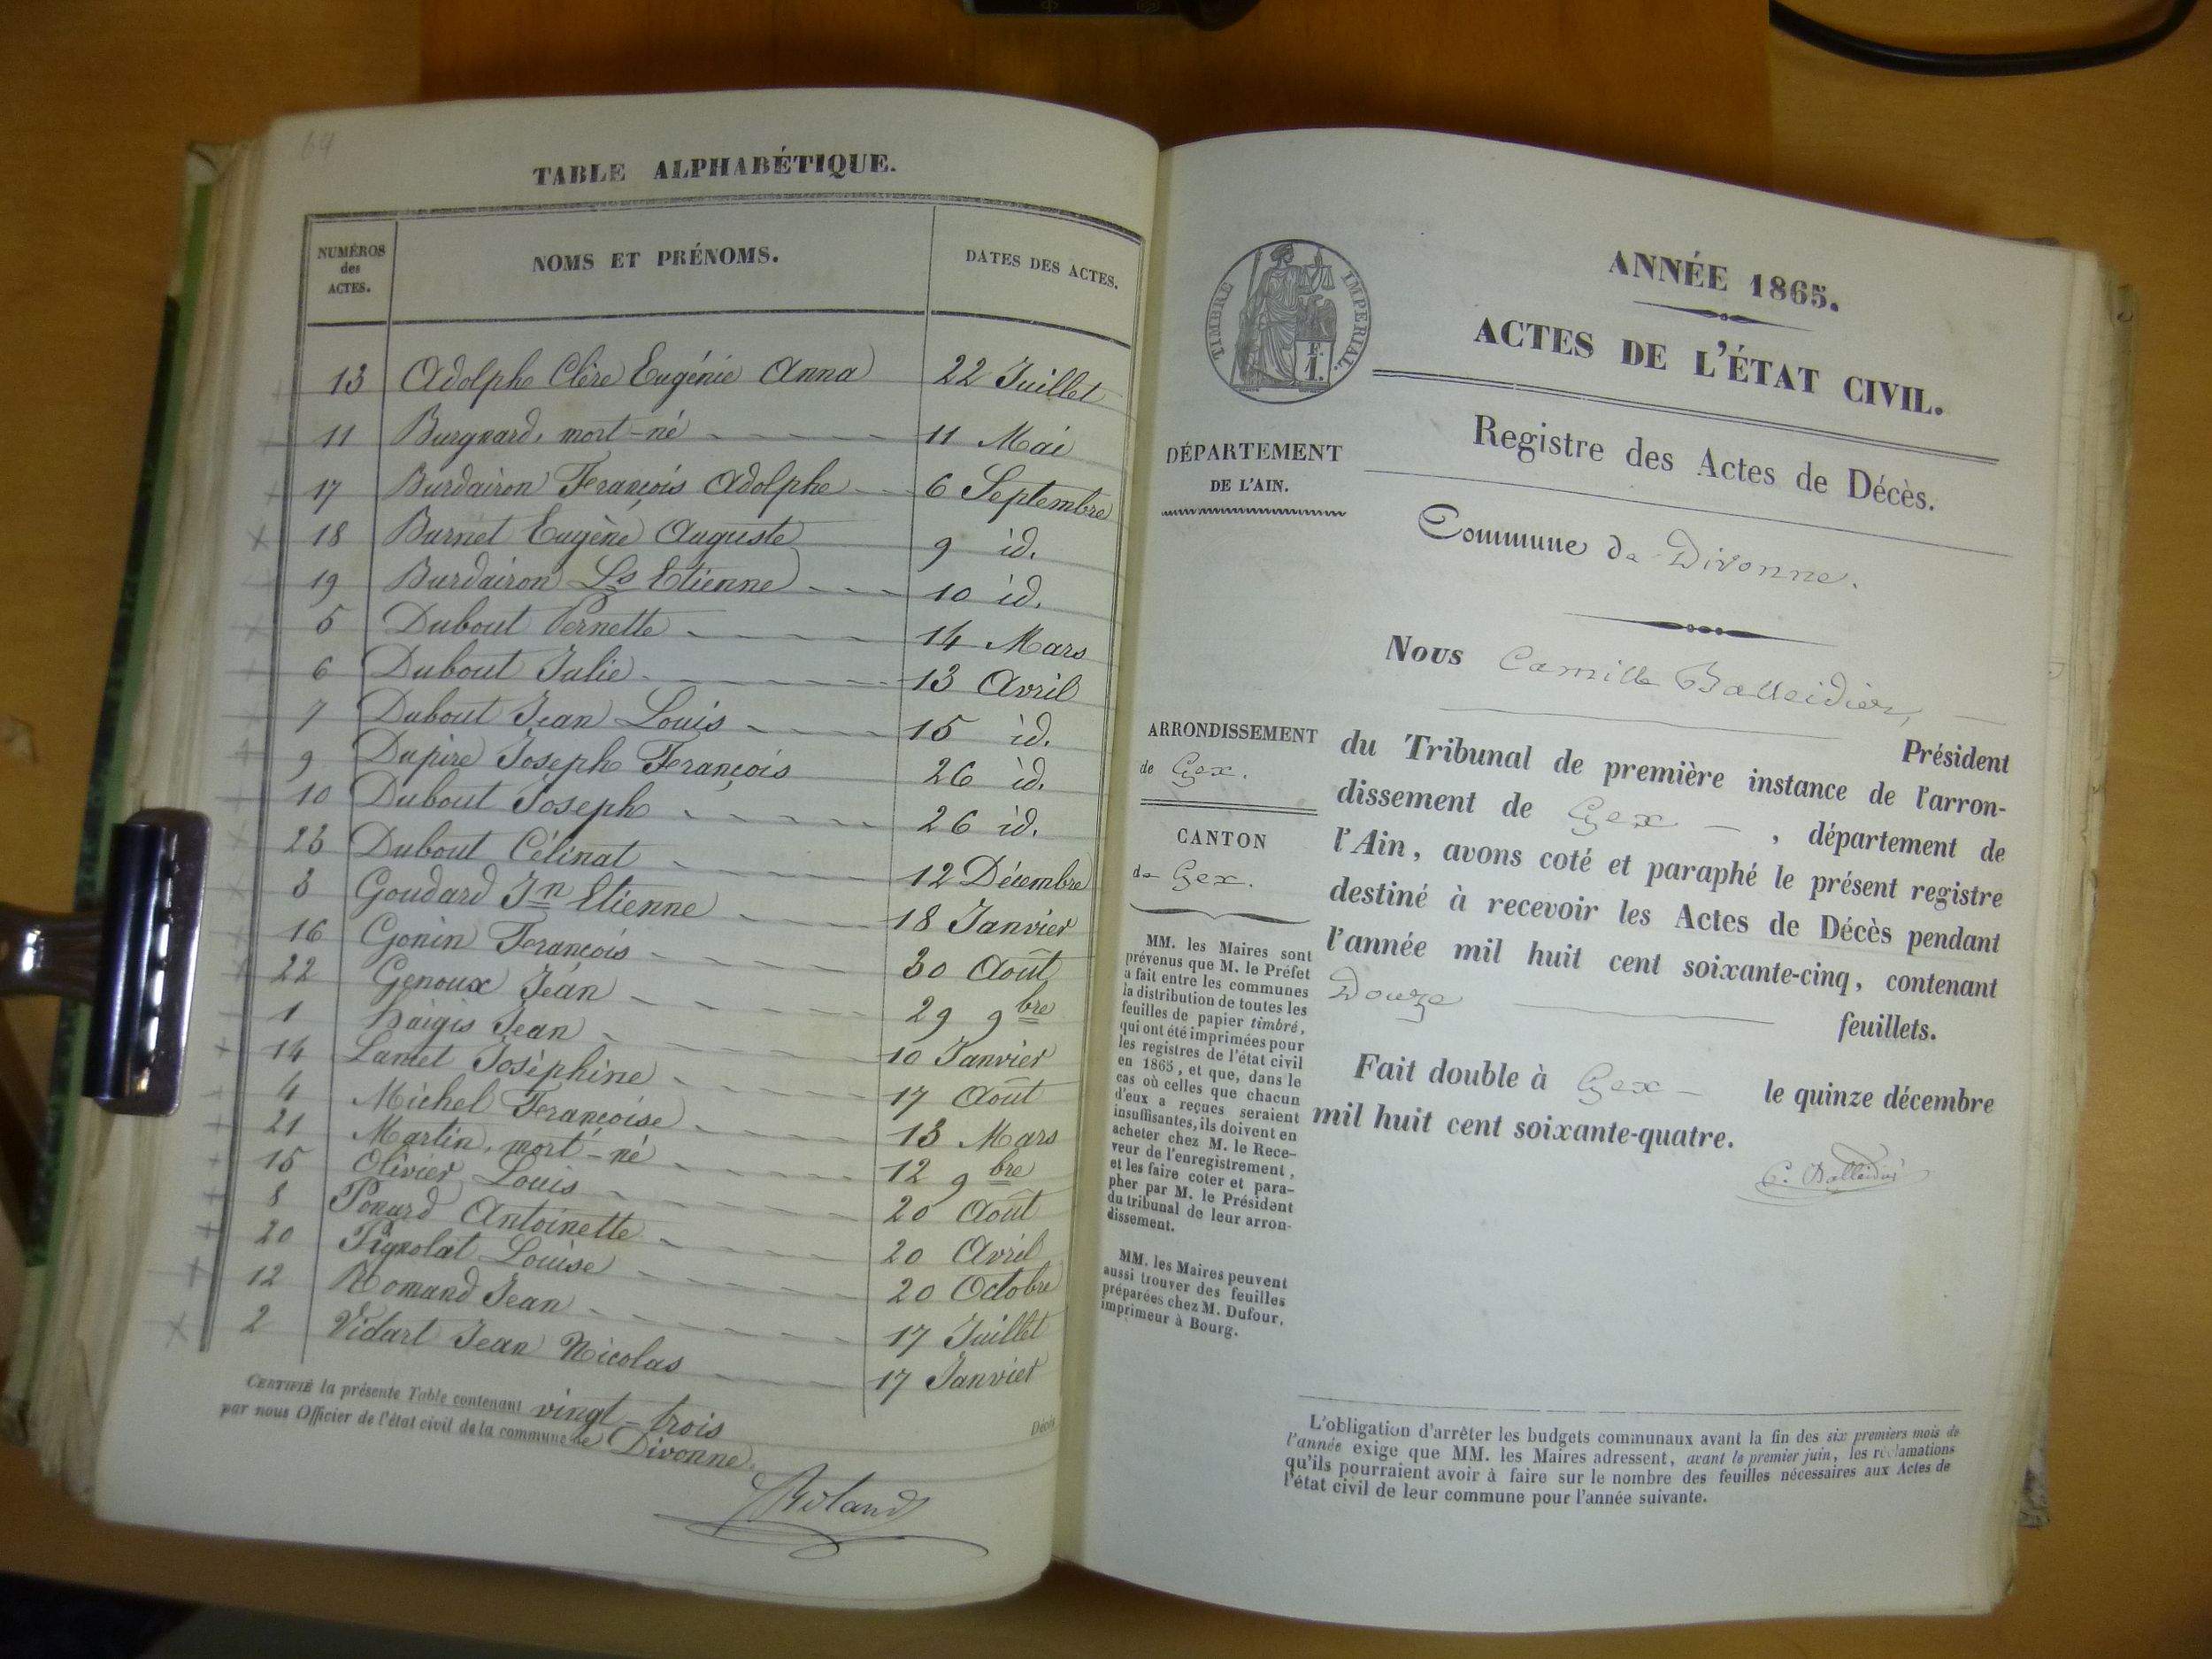 64
TABLE ALPHABÉTIQUE.
NUMÉROS des ACTES. NOMS ET PRÉNOMS. DATES DES ACTES.
13 Adolphe Clère Eugénie Anna 22 Juillet
11 Burgnard, mort-né 11 Mai
17 Burdairon François Adolphe 6 Septembre
18 Burnet Eugène Auguste 9 id.
19 Burdairon Ls Etienne 10 id.
5 Dubout Pernette 14 Mars
6 Dubout Julie 13 Avril
7 Dubout Jean Louis 15 id.
9 Dupire Joseph François 26 id.
10 Dubout Joseph 26 id.
23 Dubout Célinat 12 Décembre
3 Goudard Jn Etienne 18 Janvier
16 Gonin François 30 Août
22 Genoux Jean 29 9bre
1 Haigis Jean 10 Janvier
14 Lamet Joséphine 17 Août
4 Michel Françoise 13 Mars
21 Martin, mort-né 12 9bre
15 Olivier Louis 20 Août
8 Ponard Antoinette 20 Avril
20 Pignolat Louise 20 Octobre
12 Romand Jean 17 Juillet
2 Vidart Jean Nicolas 17 Janvier
CERTIFIÉ la présente Table contenant vingt-trois Décès
par nous Officier de l'état civil de la commune de Divonne.
Roland
TIMBRE IMPÉRIAL
F. 1.
ANNÉE 1865.
ACTES DE L'ÉTAT CIVIL.
Registre des Actes de Décès.
DÉPARTEMENT
DE L'AIN.
Commune de Divonne.
ARRONDISSEMENT
de Gex.
CANTON
de Gex.
MM. les Maires sont
prévenus que M. le Préfet
a fait entre les communes
la distribution de toutes les
feuilles de papier timbré,
qui ont été imprimées pour
les registres de l'état civil
en 1865, et que, dans le
cas où celles que chacun
d'eux a reçues seraient
insuffisantes, ils doivent en
acheter chez M. le Rece-
veur de l'enregistrement,
et les faire coter et para-
pher par M. le Président
du tribunal de leur arron-
dissement.
MM. les Maires peuvent
aussi trouver des feuilles
préparées chez M. Dufour,
imprimeur à Bourg.
Nous Camille Balleidier,
Président
du Tribunal de première instance de l'arron-
dissement de Gex, département de
l'Ain, avons coté et paraphé le présent registre
destiné à recevoir les Actes de Décès pendant
l'année mil huit cent soixante-cinq, contenant
Douze feuillets.
Fait double à Gex le quinze décembre
mil huit cent soixante-quatre.
C. Balleidier
L'obligation d'arrêter les budgets communaux avant la fin des six premiers mois de
l'année exige que MM. les Maires adressent, avant le premier juin, les réclamations
qu'ils pourraient avoir à faire sur le nombre des feuilles nécessaires aux Actes de
l'état civil de leur commune pour l'année suivante.